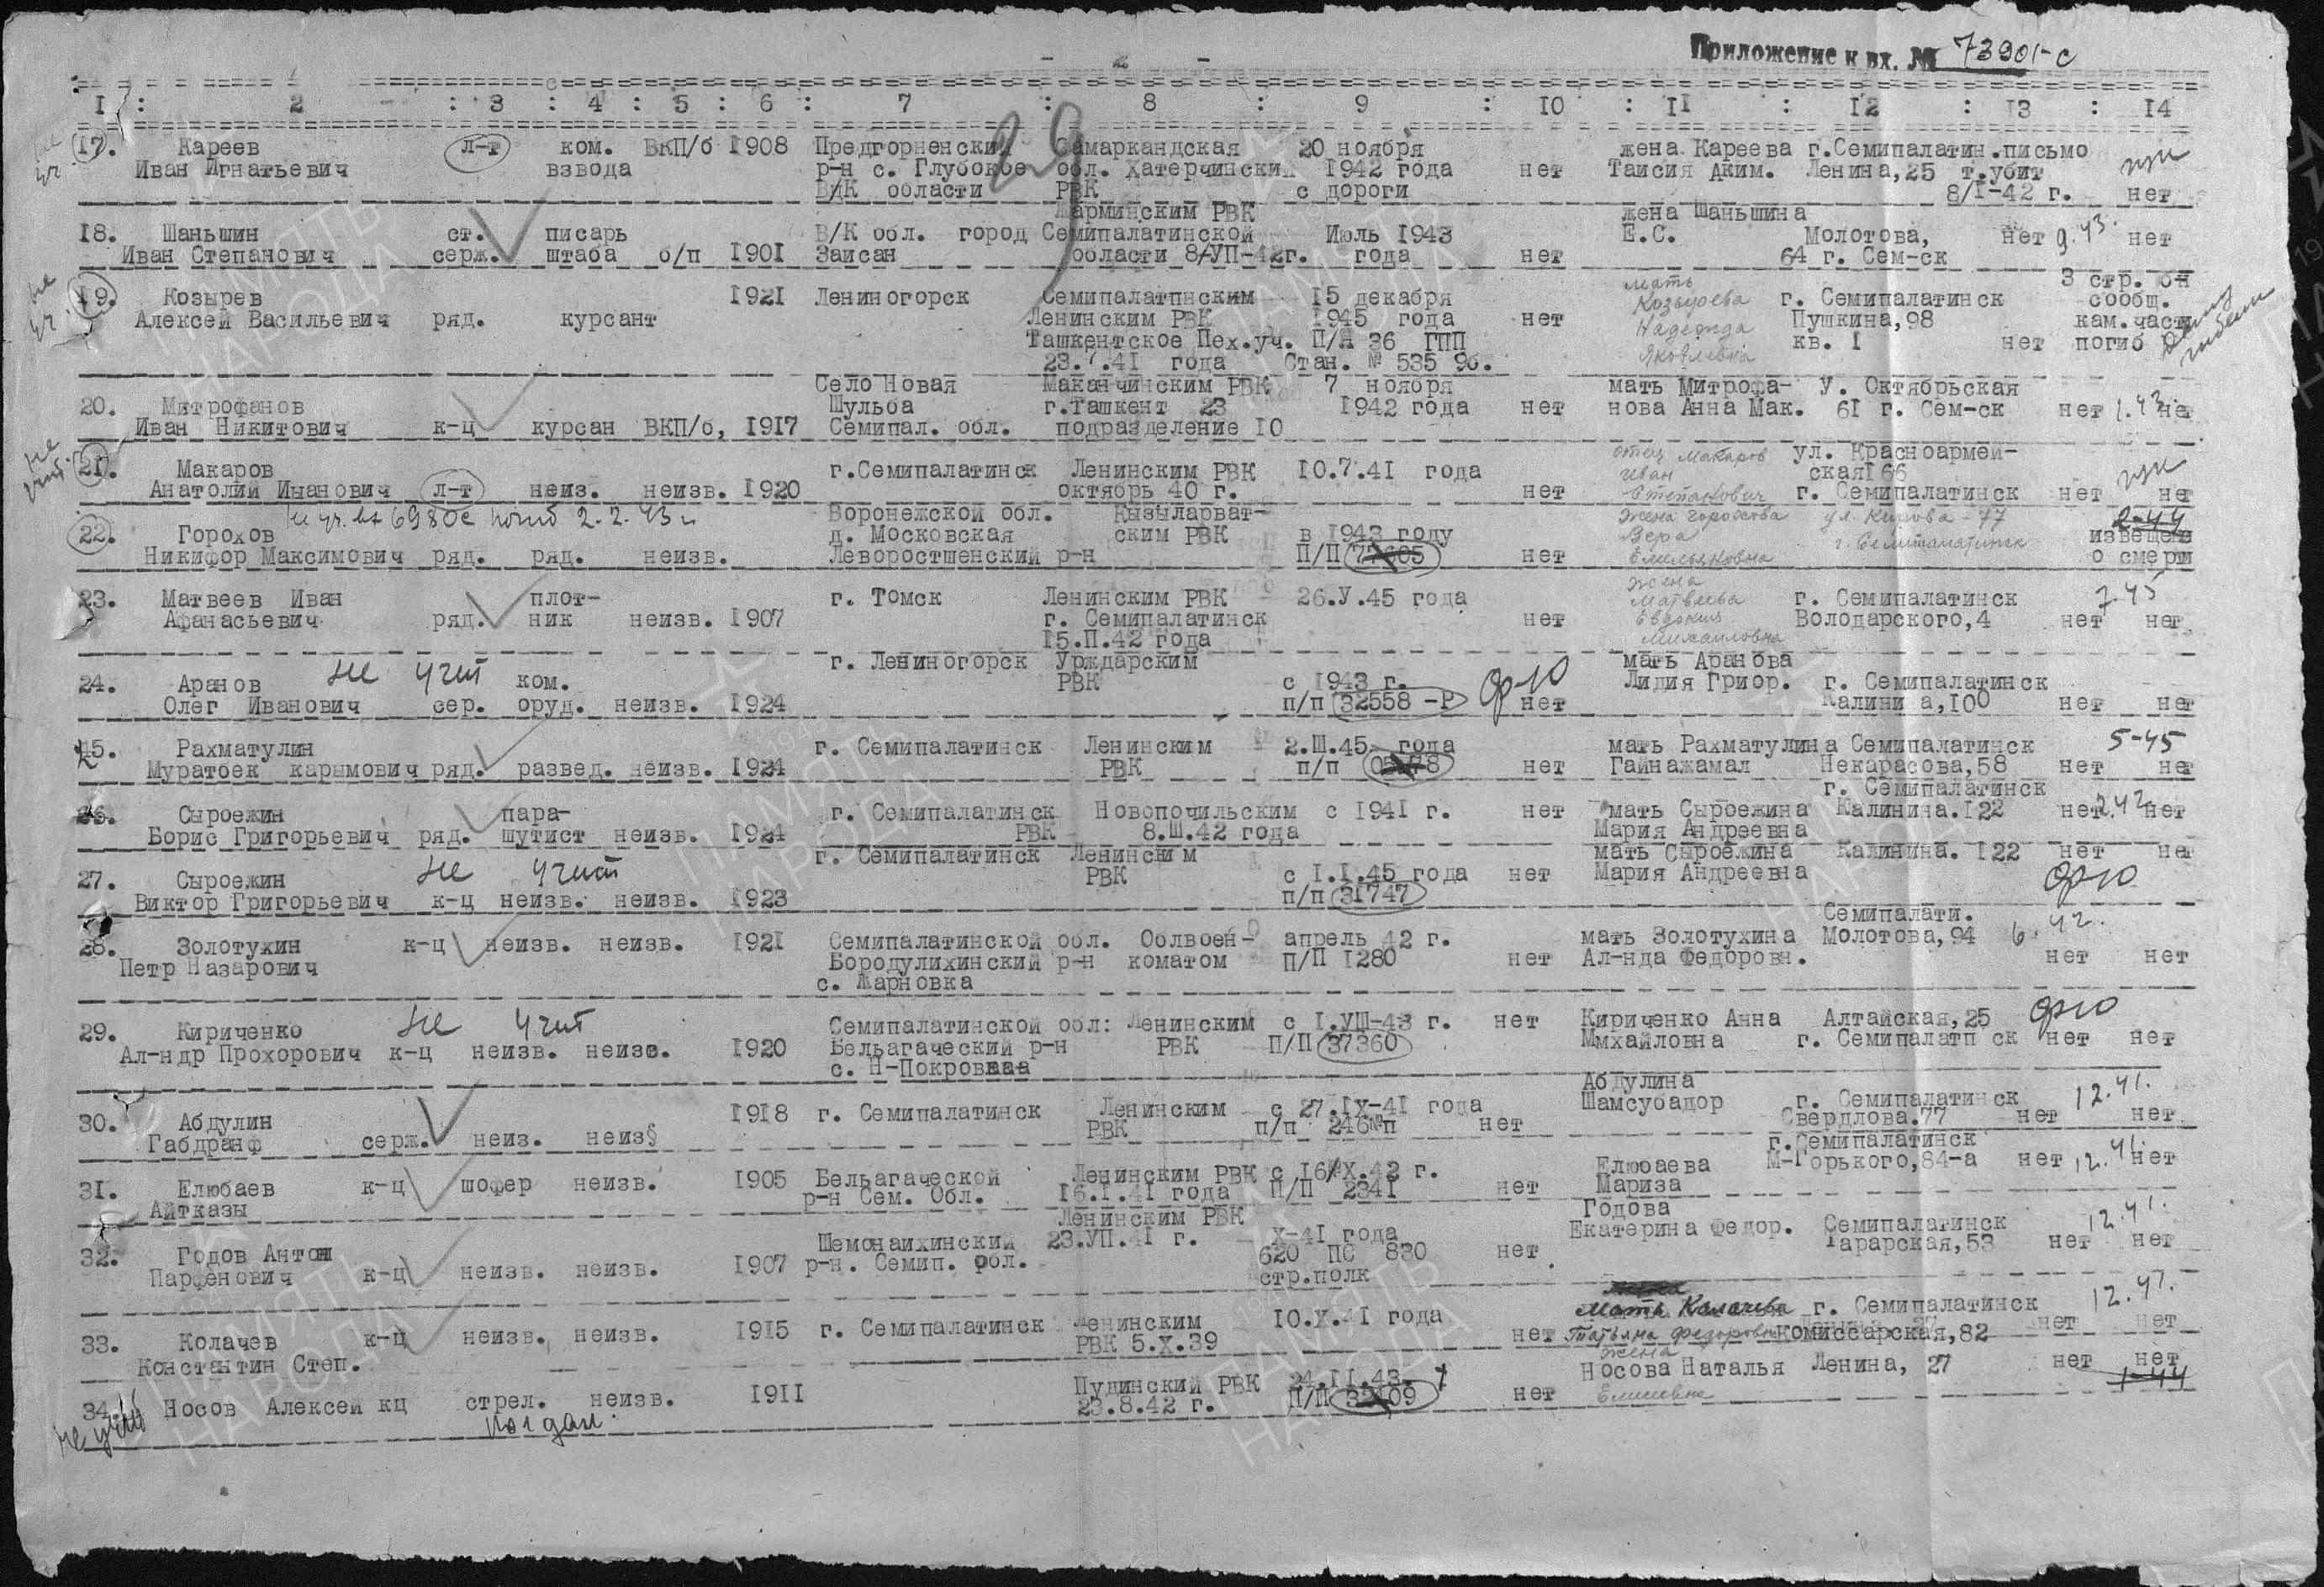 - 2 -
Приложение к вх. № 73901-с
I : 2 : 3 : 4 : 5 : 6 : 7 : 8 : 9 : 10 : 11 : 12 : 13 : 14
29
не уч.
17. Кареев л-т ком. ВКП/б 1908 Предгорненский Самаркандская 20 ноября жена Кареева г.Семипалатин.письмо
Иван Игнатьевич взвода р-н с. Глубокое обл. Хатерчинский 1942 года нет Таисия Аким. Ленина,25 т.убит
В/К области РВК с дороги 8/I-42 г. нет
Жарминским РВК жена Шаньшина
18. Шаньшин ст. писарь В/К обл. город Семипалатинской Июль 1943 Е.С. Молотова, нет 9.43. нет
Иван Степанович серж. штаба б/п 1901 Зайсан области 8/УП-42г. года нет 64 г. Сем-ск
не уч.
мать 3 стр. он
19. Козырев 1921 Лениногорск Семипалатинским 15 декабря Козырева г. Семипалатинск сообщ.
Алексей Васильевич ряд. курсант Ленинским РВК 1945 года нет Надежда Пушкина,98 кам.части
Ташкентское Пех.уч. П/Я 36 ГПП Яковлевна кв. I нет погиб
23.7.41 года Стан. № 535 9б.
Село Новая Маканчинским РВК 7 ноября мать Митрофа- У. Октябрьская
20. Митрофанов Шульба г.Ташкент 23 1942 года нет нова Анна Мак. 61 г. Сем-ск нет 1.43 нет
Иван Никитович к-ц курсан ВКП/б, 1917 Семипал. обл. подразделение 10
не учит.
21. Макаров г.Семипалатинск Ленинским РВК 10.7.41 года отец Макаров ул. Красноармей-
Иван ская166
Анатолий Инанович л-т неиз. неизв. 1920 октябрь 40 г. нет Степанович г. Семипалатинск нет нет
не уч. вх 6980с погиб 2.2.43 г
22. Горохов Воронежской обл. Кызыларват- жена Горохова ул. Кирова - 77 2-44
д. Московская ским РВК в 1943 году Вера г. Семипалатинск извещен
Никифор Максимович ряд. ряд. неизв. Леворостшенский р-н П/П нет Емельяновна о смерти
жена
23. Матвеев Иван плот- г. Томск Ленинским РВК 26.У.45 года Матвеева г. Семипалатинск 7.45
Афанасьевич ряд. ник неизв. 1907 г. Семипалатинск нет Евдокия Володарского,4 нет нет
15.П.42 года Михайловна
г. Лениногорск Урждарским мать Аранова
24. Аранов не учит ком. РВК с 1943 г. Лидия Григор. г. Семипалатинск
Олег Иванович сер. оруд. неизв. 1924 п/п 32558 -Р нет Калини а,100 нет нет
25. Рахматулин г. Семипалатинск Ленинским 2.Ш.45 года мать Рахматулина Семипалатинск 5-45
Муратбек каримович ряд. развед. неизв. 1924 РВК п/п нет Гайнажамал Некарасова,58 нет нет
г. Семипалатинск
26. Сыроежин пара- г. Семипалатинск Новопочильским с 1941 г. нет мать Сыроежина Калинина.122 нет 2.42 нет
Борис Григорьевич ряд. шутист неизв. 1924 РВК 8.Ш.42 года Мария Андреевна
г. Семипалатинск Ленинским мать Сыроежина Калинина. 122 нет нет
27. Сыроежин не учит РВК с I.I.45 года нет Мария Андреевна
Виктор Григорьевич к-ц неизв. неизв. 1923 п/п 31747
Семипалати.
28. Золотухин к-ц неизв. неизв. 1921 Семипалатинской обл. Облвоен- апрель 42 г. мать Золотухина Молотова,94 6.42.
Петр Назарович Бородулихинский р-н коматом П/П 1280 нет Ал-нда Федоровн. нет нет
с. Жарновка
29. Кириченко не учит Семипалатинской обл: Ленинским с I.УШ-43 г. нет Кириченко Анна Алтайская,25
Ал-ндр Прохорович к-ц неизв. неизв. 1920 Бельагаческий р-н РВК П/П 37360 Ммхайловна г. Семипалатп ск нет нет
с. Н-Покровка
Абдулина
30. Абдулин 1918 г. Семипалатинск Ленинским с 27.IX-41 года Шамсубадор г. Семипалатинск 12.41.
Габдранф серж. неиз. неиз§ РВК п/п 246 п нет Свердлова.77 нет нет
г.Семипалатинск
31. Елюбаев к-ц шофер неизв. 1905 Бельагаческой Ленинским РВК с 16/X.42 г. Елюбаева М-Горького,84-а нет 12.41. нет
Айтказы р-н Сем. Обл. 16.I.41 года П/П 2341 нет Мариза
Ленинским РВК Годова
32. Годов Антон Шемонаихинский 23.УП.41 г. X-41 года Екатерина Федор. Семипалатинск 12.41.
Парфенович к-ц неизв. неизв. 1907 р-н. Семип. обл. 620 ПС 830 нет Тарарская,53 нет нет
стр.полк
33. Колачев к-ц неизв. неизв. 1915 г. Семипалатинск Ленинским 10.X.41 года мать Калачева г. Семипалатинск 12.41.
Константин Степ. РВК 5.X.39 нет Татьяна Федоровна Комиссарская,82 нет нет
жена
Носова Наталья Ленина, 27 нет нет
34. Носов Алексей кц стрел. неизв. 1911 Пудинский РВК 24.11.43. нет 1-44
не учит 23.8.42 г. П/П